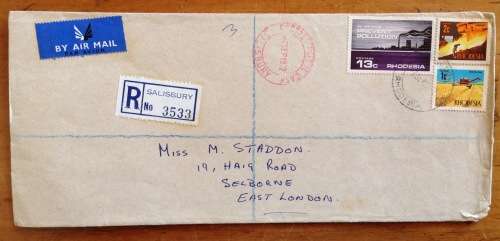 BY AIR MAIL
PAR AVION
R
SALISBURY
No 3533
PREVENT
POLLUTION
13c RHODESIA
2c
RHODESIA
1c
RHODESIA
MISS M. STADDON.
19, HAIG ROAD
SELBORNE
EAST LONDON.